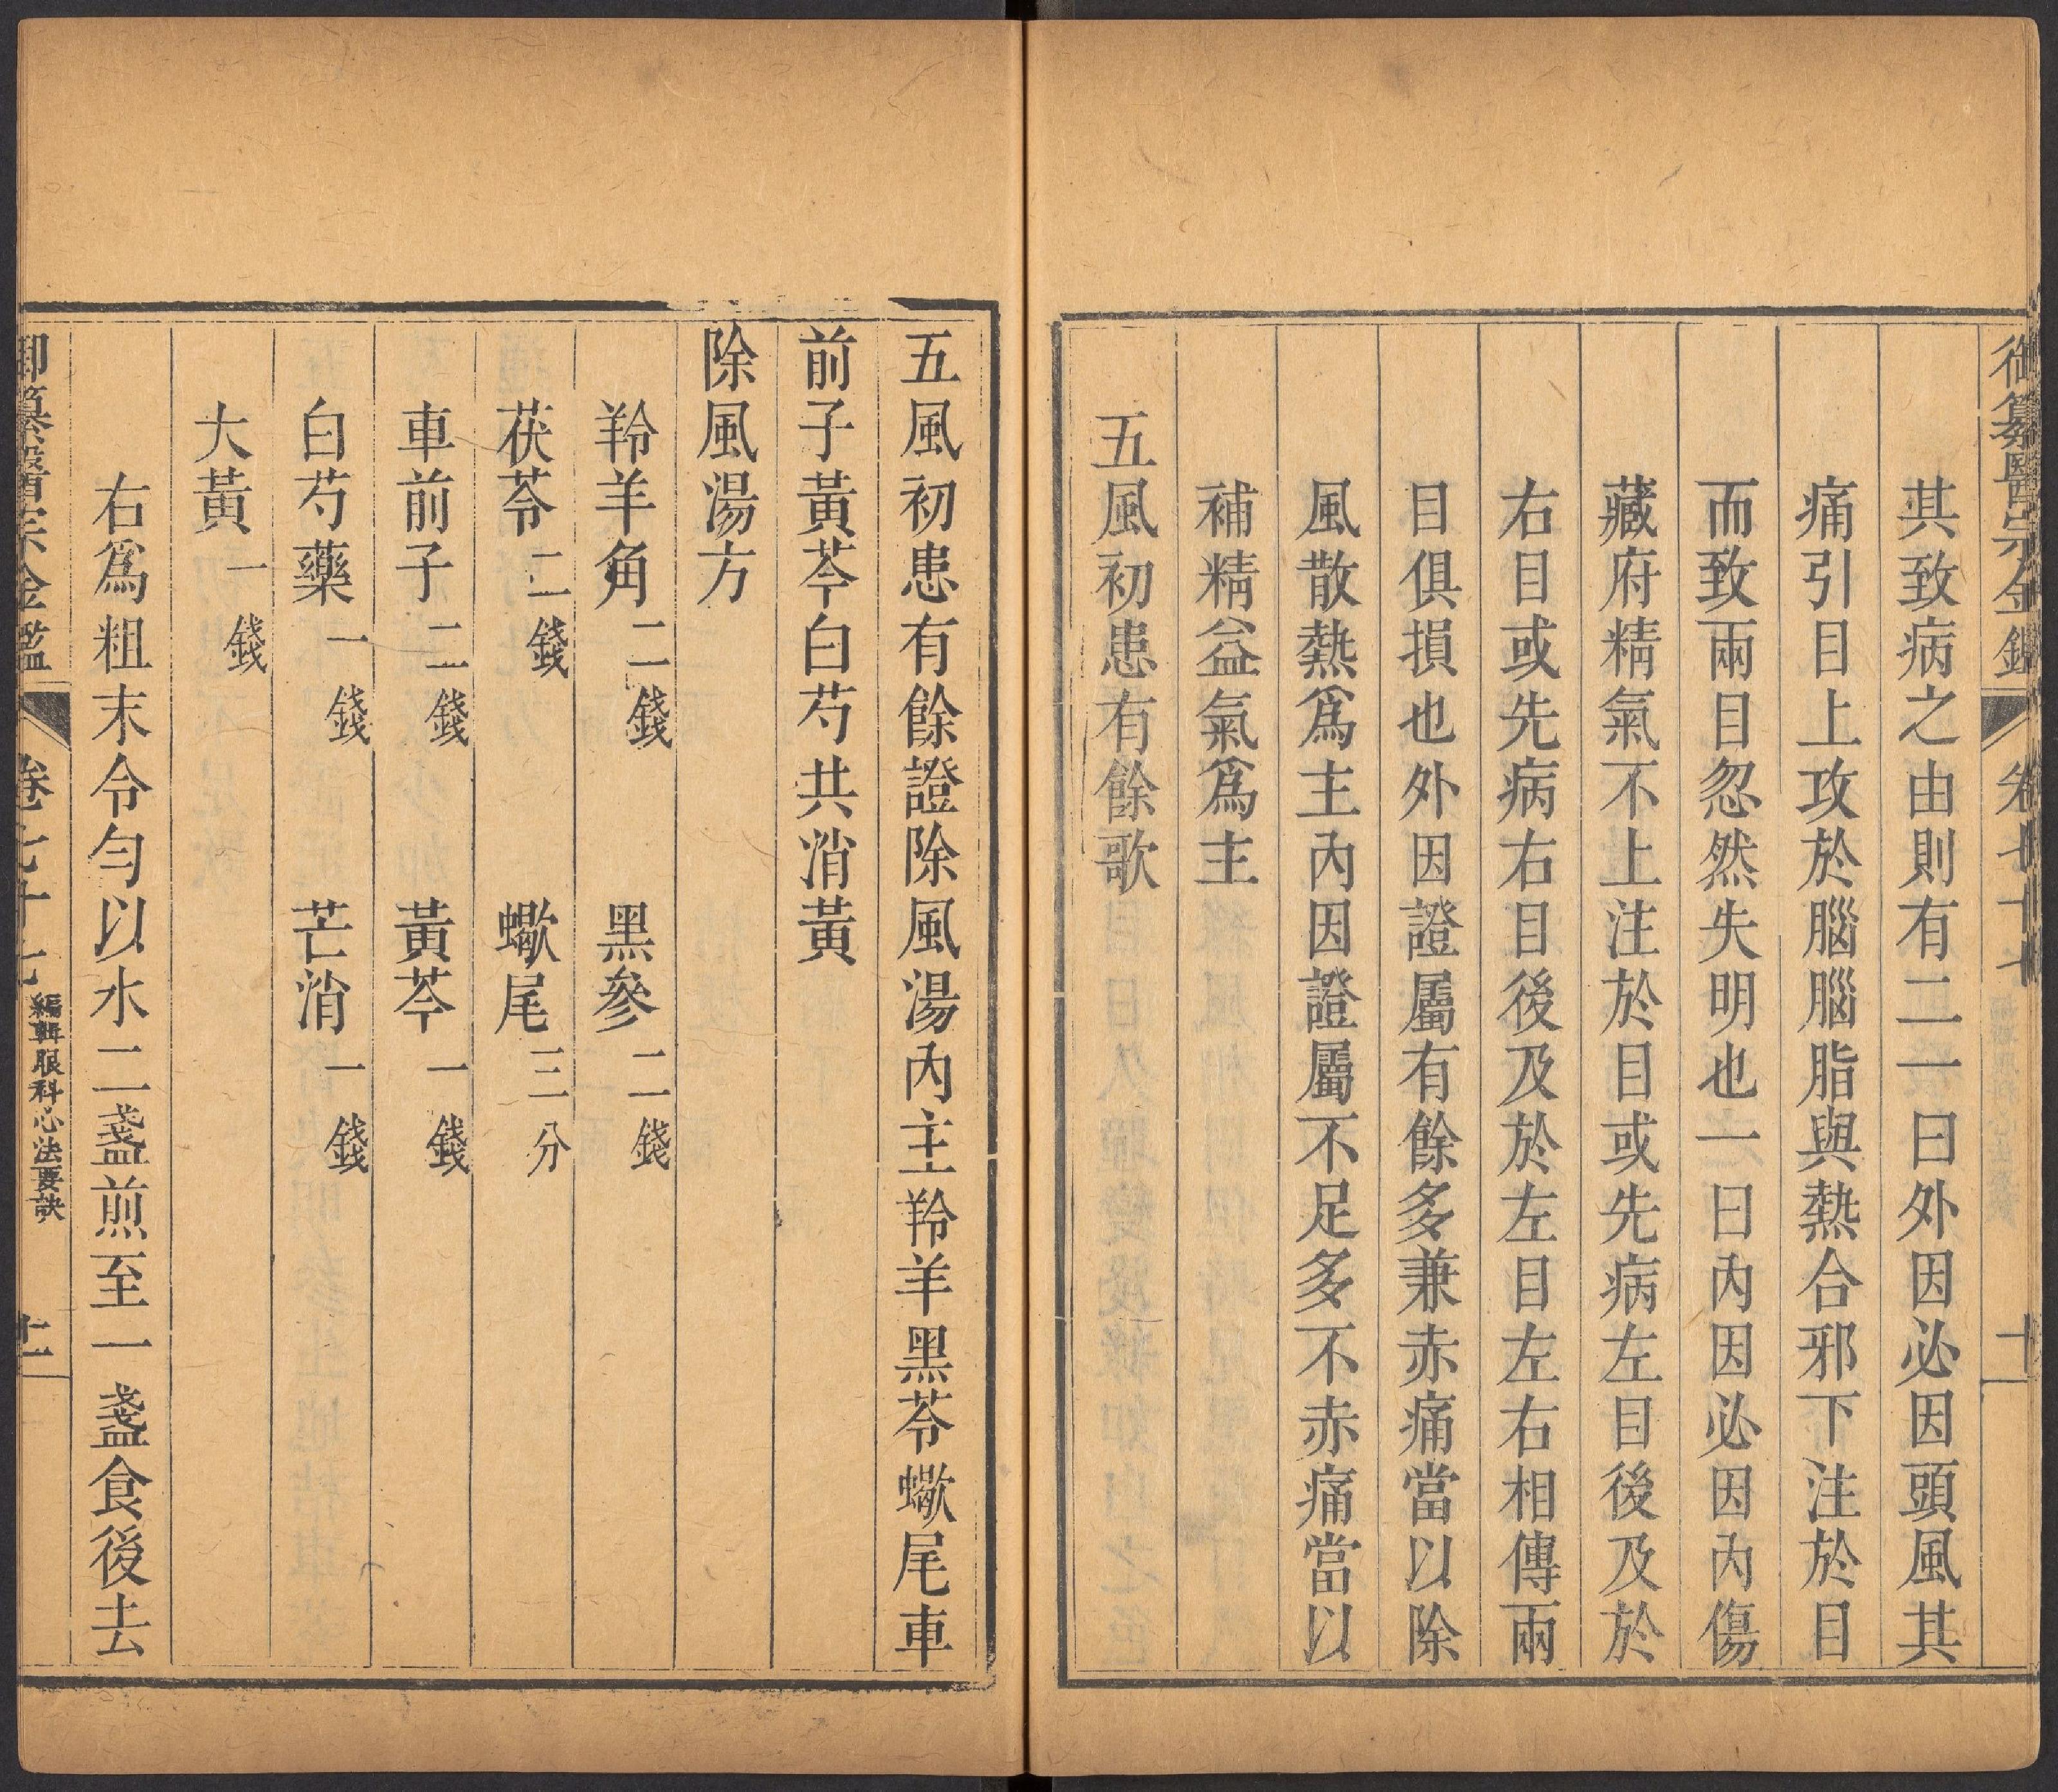 御纂醫宗金鑑 卷七十七 十
其致病之由則有二一曰外因必因頭風其
痛引目上攻於腦腦脂與熱合邪下注於目
而致兩目忽然失明也一曰內因必因內傷
藏府精氣不上注於目或先病左目後及於
右目或先病右目後及於左目左右相傳兩
目俱損也外因證屬有餘多兼赤痛當以除
風散熱爲主內因證屬不足多不赤痛當以
補精益氣爲主
五風初患有餘歌
五風初患有餘證除風湯內主羚羊黑苓蠍尾車
前子黃芩白芍共消黃
除風湯方
羚羊角二錢 黑參二錢
茯苓二錢 蠍尾三分
車前子二錢 黃芩一錢
白芍藥一錢 芒消一錢
大黃一錢
右爲粗末令勻以水二盞煎至一盞食後去
御纂醫宗金鑑 卷七十七 編輯眼科心法要訣 十一